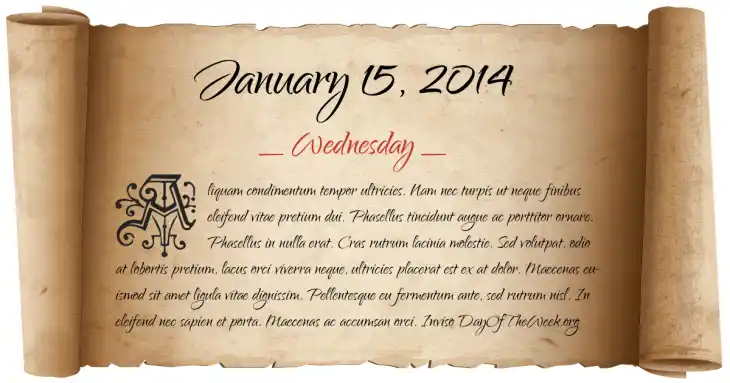 January 15, 2014
_ Wednesday _
Aliquam condimentum tempor ultricies. Nam nec turpis ut neque finibus
eleifend vitae pretium dui. Phasellus tincidunt augue ac porttitor ornare.
Phasellus in nulla erat. Cras rutrum lacinia molestie. Sed volutpat, odio
at lobortis pretium, lacus orci viverra neque, ultricies placerat est ex at dolor. Maecenas eu-
ismod sit amet ligula vitae dignissim. Pellentesque eu fermentum ante, sed rutrum nisl. In
eleifend nec sapien et porta. Maecenas ac accumsan orci. Invise DayOfTheWeek.org